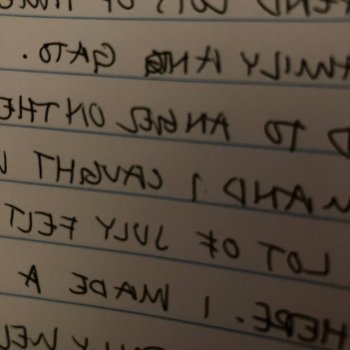 END LOTS OF TIM
AMILY AND GATO.
D TO ANGEL ON THE
AND I CAUGHT
LOT OF JULY FELT
HERE. I MADE A